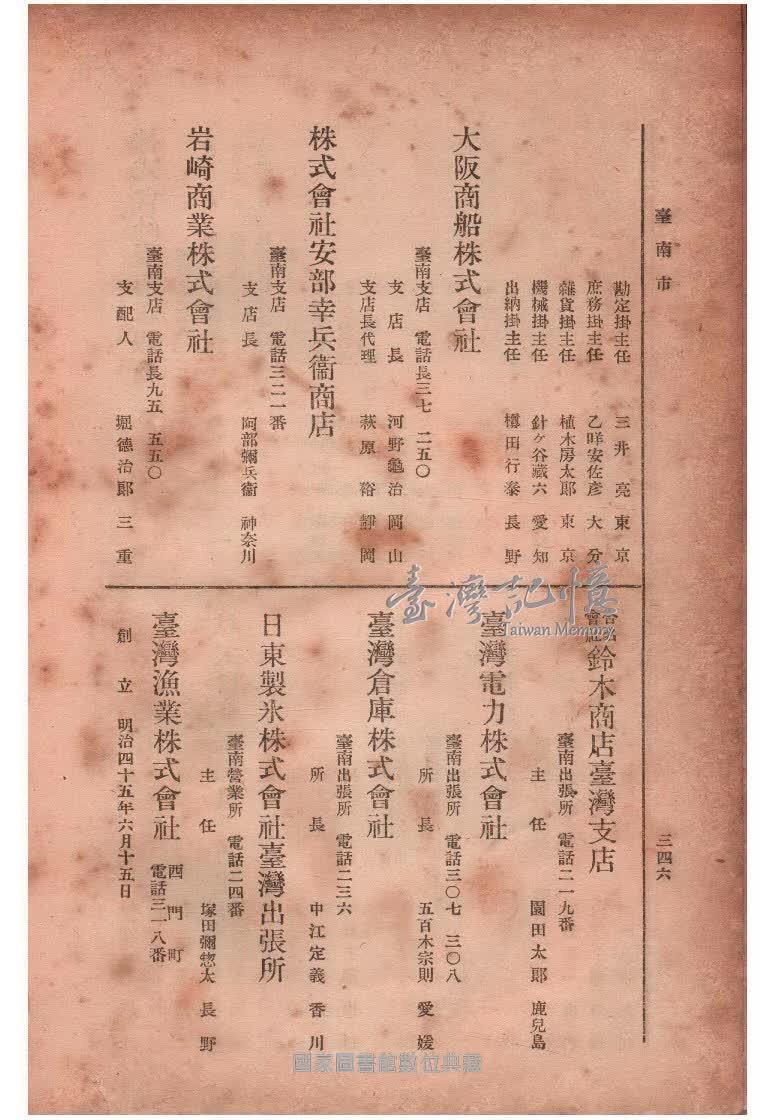 臺南市
三四六
勘定掛主任 三井亮 東京
庶務掛主任 乙咩安佐彥 大分
雜貨掛主任 植木房太郞 東京
機械掛主任 針ヶ谷藏六 愛知
出納掛主任 樽田行泰 長野
大阪商船株式會社
臺南支店 電話長三七 二五〇
支店長 河野龜治 岡山
支店長代理 萩原裕 靜岡
株式會社安部幸兵衞商店
臺南支店 電話三二一番
支店長 阿部彌兵衞 神奈川
岩崎商業株式會社
臺南支店 電話長九五 五五〇
支配人 堀德治郞 三重
合名會社鈴木商店臺灣支店
臺南出張所 電話二一九番
主任 園田太郞 鹿兒島
臺灣電力株式會社
臺南出張所 電話三〇七 三〇八
所長 五百木宗則 愛媛
臺灣倉庫株式會社
臺南出張所 電話二三六
所長 中江定義 香川
日東製氷株式會社臺灣出張所
臺南營業所 電話二四番
主任 塚田彌惣太 長野
臺灣漁業株式會社 西門町 電話三一八番
創立 明治四十五年六月十五日
臺灣記憶
Taiwan Memory
國家圖書館數位典藏